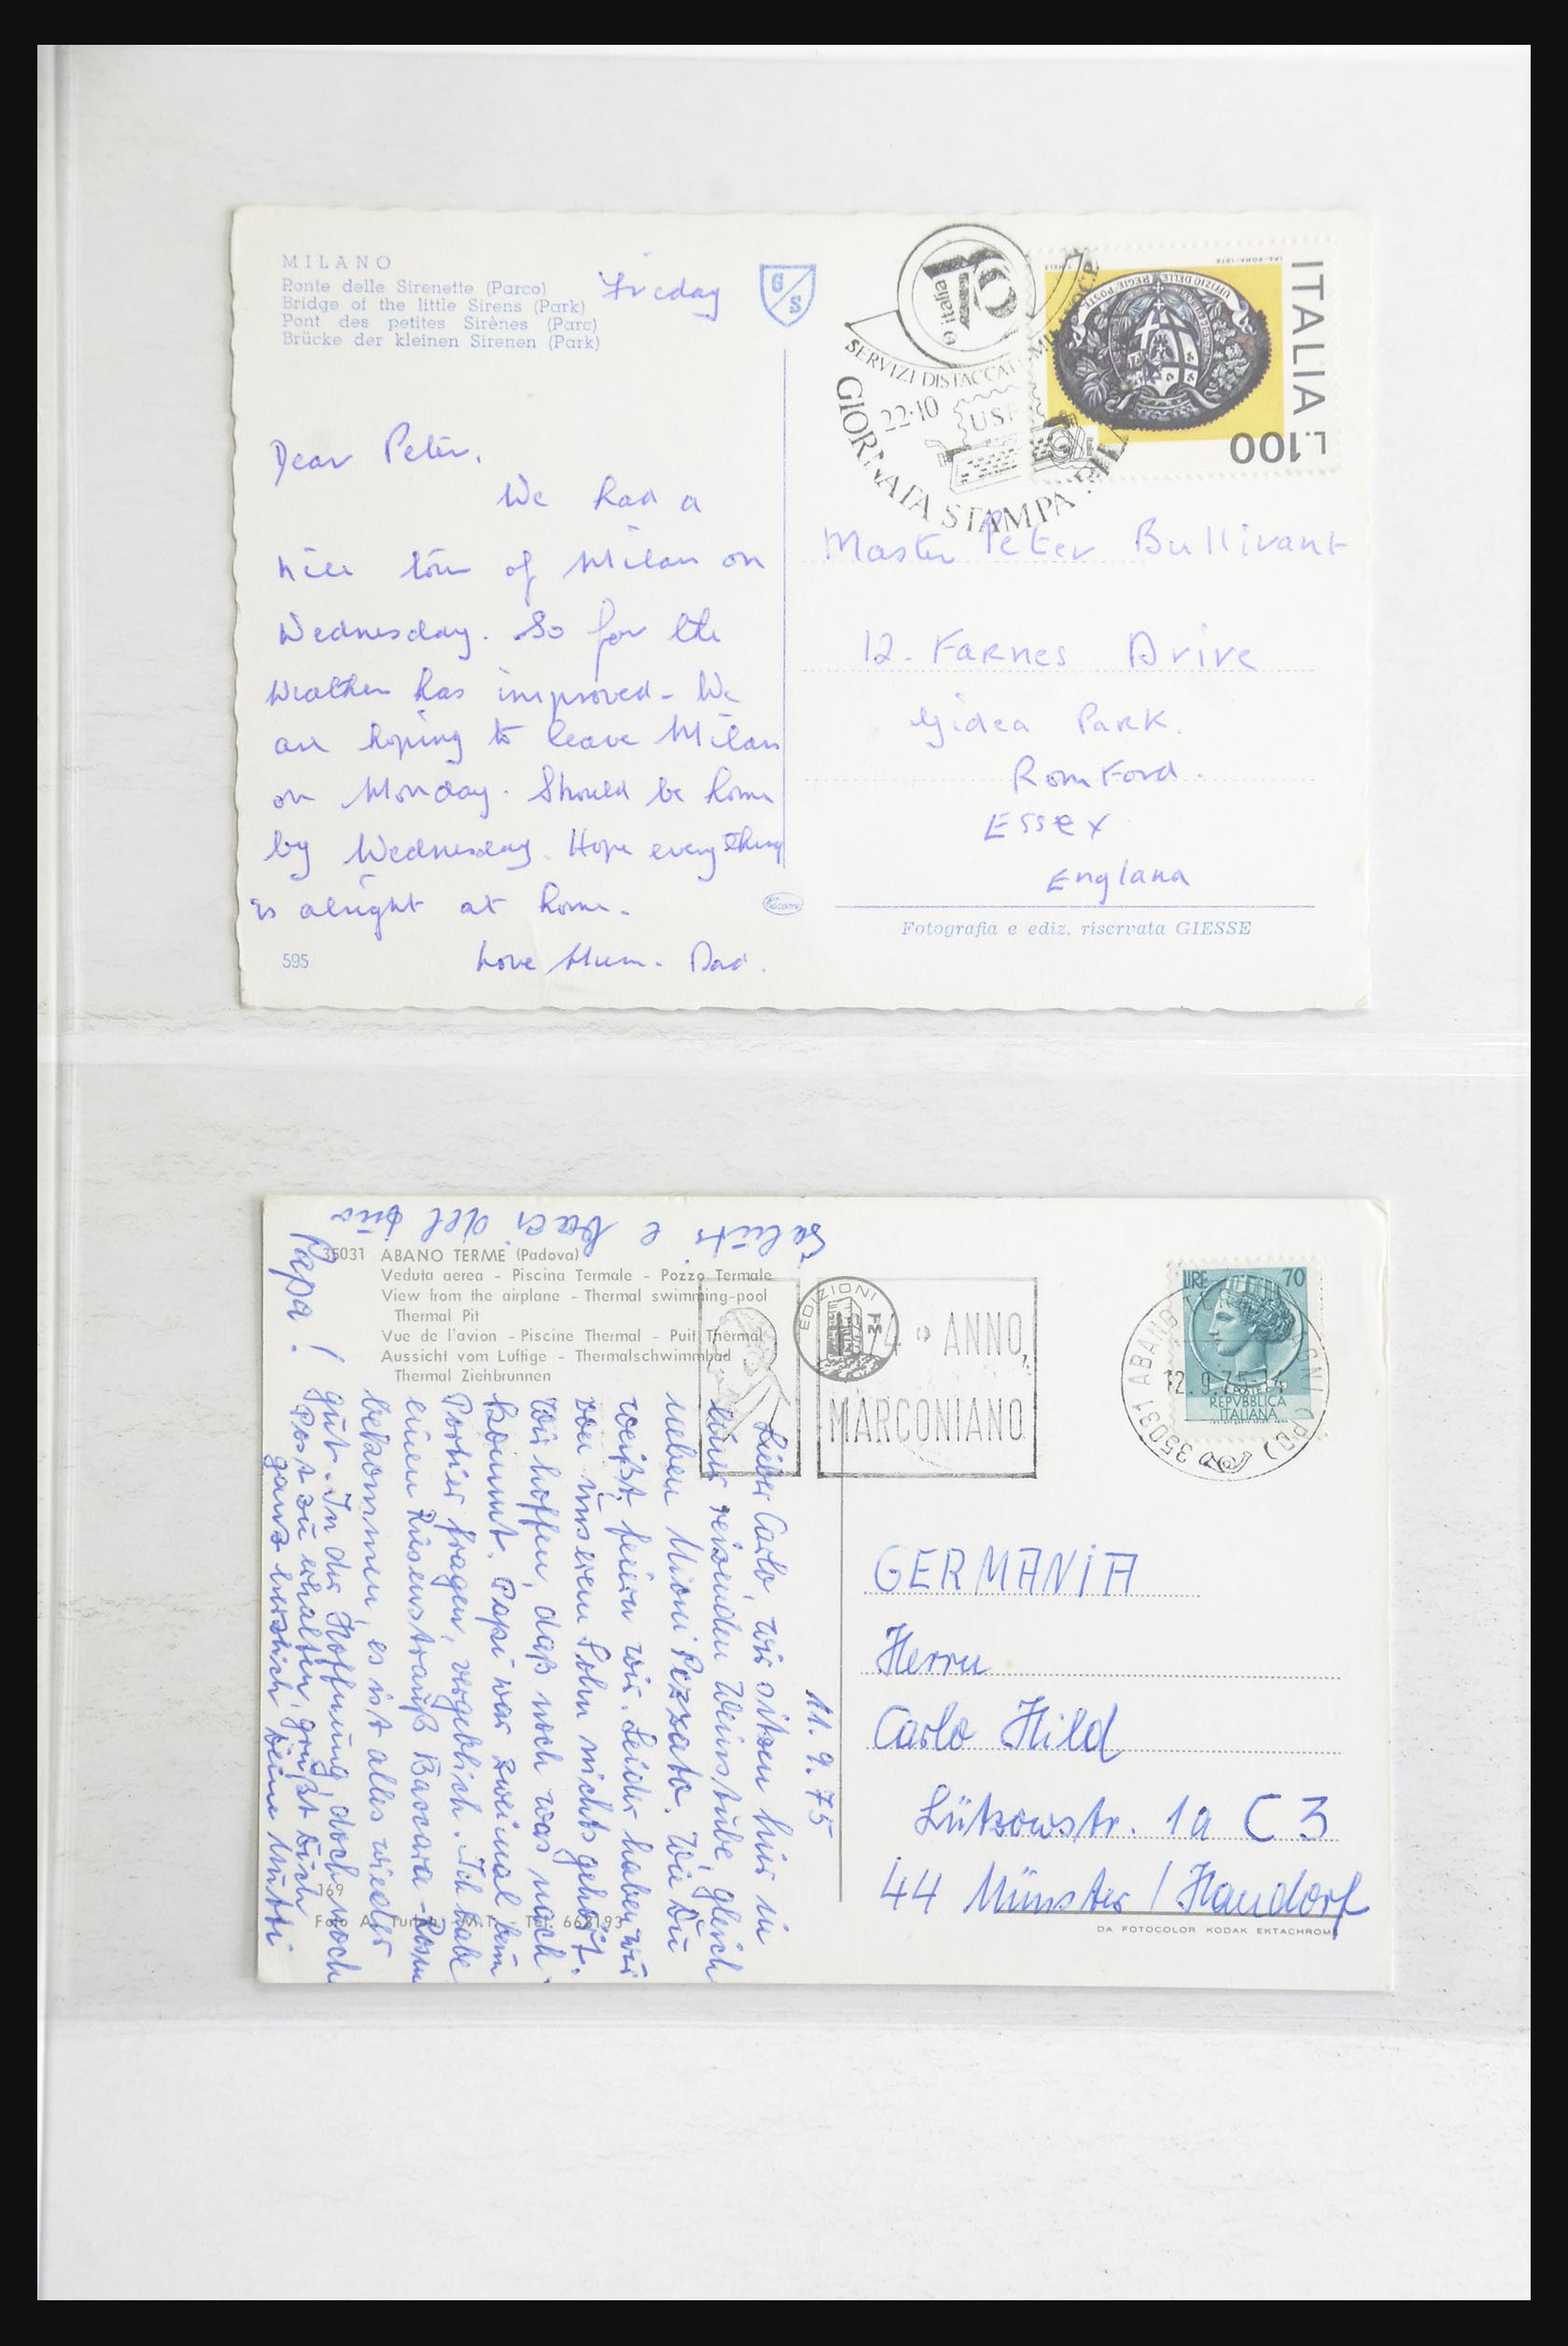 MILANO
Ponte delle Sirenette (Parco)
Bridge of the little Sirens (Park)
Pont des petites Sirènes (Parc)
Brücke der kleinen Sirenen (Park)
Friday
GS
Dear Peter,
We had a
nice tour of Milan on
Wednesday. So far the
Weather has improved - We
are hoping to leave Milan
on Monday. Should be home
by Wednesday. Hope everything
is alright at home.
Love Mum. Dad.
595
italia 76
SERVIZI DISTACCATI MILANO C.P.
22·10
GIORNATA STAMPA FIL
UFFIZIO DELLE REGIE POSTE
ITALIA
L.100
Master Peter Bullivant
12. Farnes Drive
Gidea Park.
Romford.
Essex
England
Fotografia e ediz. riservata GIESSE
Saluti e baci del tuo
Papa!
35031 ABANO TERME (Padova)
Veduta aerea - Piscina Termale - Pozzo Termale
View from the airplane - Thermal swimming-pool
Thermal Pit
Vue de l'avion - Piscine Thermal - Puit Thermal
Aussicht vom Luftige - Thermalschwimmbad
Thermal Ziehbrunnen
EDIZIONI
74° ANNO
MARCONIANO
LIRE 70
REPVBBLICA
ITALIANA
35031 ABANO
12.9.75-14
11.9.75
Lieber Carlo, wir sitzen hier in
einer reizenden Weinstube, gleich
neben Mioni Pezzato. Wie Du
weißt, feiern wir. Leider haben wir
von unserem Sohn nichts gehört.
Wir hoffen, daß noch was nach-
kommt. Papi war zweimal beim
Portier fragen, vergeblich. Ich habe
einen Riesenstrauß Baccara-Rosen
bekommen, es ist alles wieder
gut. In der Hoffnung, doch noch
Post zu erhalten, grüßt Dich
ganz herzlich Deine Mutti
169
GERMANIA
Herrn
Carlo Hild
Lützowstr. 1a C 3
44 Münster / Handorf
DA FOTOCOLOR KODAK EKTACHROME